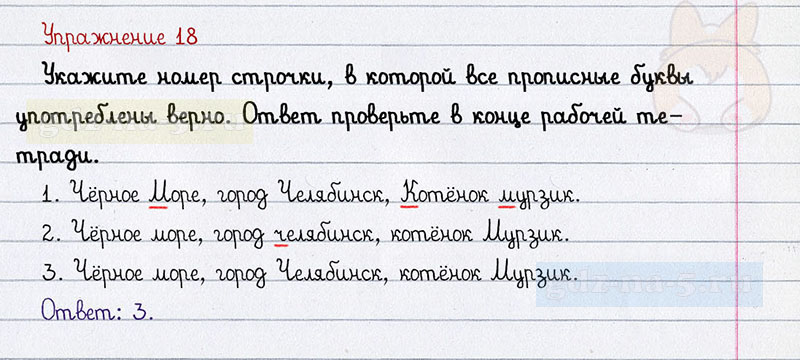 Упражнение 18
Укажите номер строчки, в которой все прописные буквы
употреблены верно. Ответ проверьте в конце рабочей те-
тради.
1. Чёрное Море, город Челябинск, Котёнок мурзик.
2. Чёрное море, город челябинск, котёнок Мурзик.
3. Чёрное море, город Челябинск, котёнок Мурзик.
Ответ: 3.